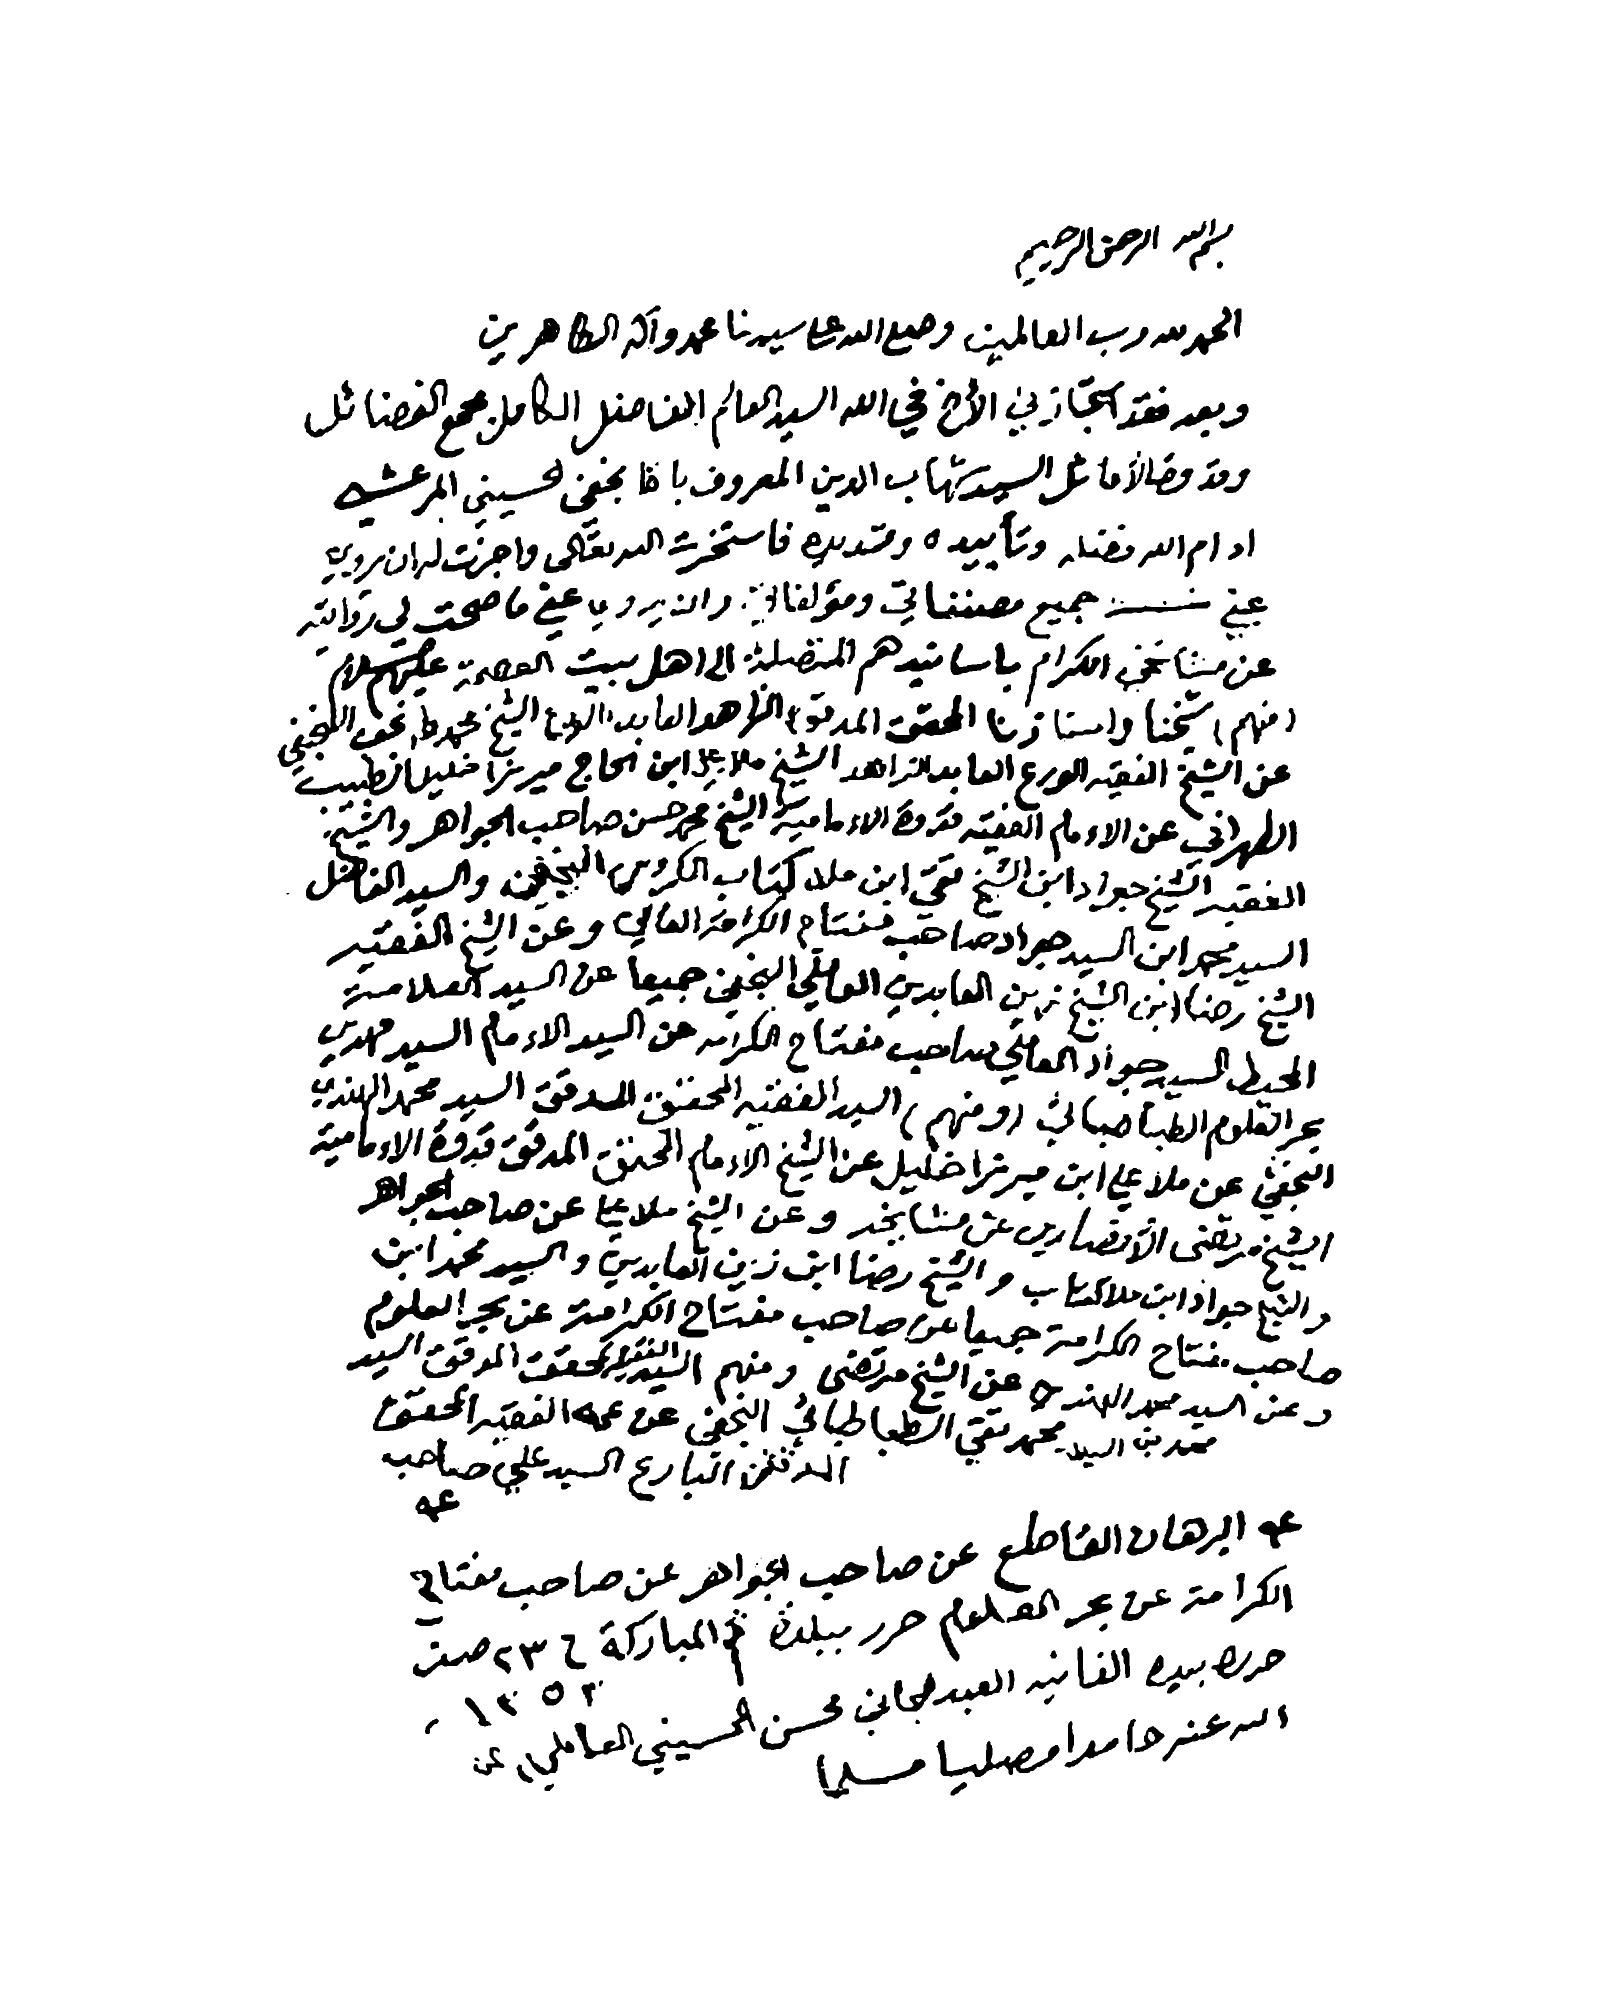 بسم الله الرحمن الرحيم
الحمد لله رب العالمين وصلى الله على سيدنا محمد وآله الطاهرين
وبعد فقد استجازني الأخ في الله السيد العالم الفاضل الكامل مجمع الفضائل
وقدوة الأماثل السيد شهاب الدين المعروف بآقا نجفي الحسيني المرعشي
ادام الله فضله وتأييده وتسديده فاستخرت الله تعالى واجزت له ان يروي
عني جميع مصنفاتي ومؤلفاتي وان يروي عني ما صحت لي روايته
عن مشائخي الكرام باسانيدهم المتصلة الى اهل بيت العصمة عليهم السلام
(منهم) شيخنا واستاذنا المحقق المدقق الزاهد العابد الورع الشيخ محمد طه نجف النجفي
عن الشيخ الفقيه الورع العابد الزاهد الشيخ ملا علي ابن الحاج ميرزا خليل الطبيب
الطهراني عن الامام الفقيه قدوة الامامية الشيخ محمد حسن صاحب الجواهر والشيخ
الفقيه الشيخ جواد ابن الشيخ تقي ابن ملا كتاب الكروس النجفي والسيد الفاضل
السيد محمد ابن السيد جواد صاحب مفتاح الكرامة العاملي وعن الشيخ الفقيه
الشيخ رضا ابن الشيخ زين العابدين العاملي النجفي جميعا عن السيد العلامة
المحيط السيد جواد العاملي صاحب مفتاح الكرامة عن السيد الامام السيد مهدي
بحر العلوم الطباطبائي (ومنهم) السيد الفقيه المحقق المدقق السيد محمد الهندي
النجفي عن ملا علي ابن ميرزا خليل عن الشيخ الامام المحقق المدقق قدوة الامامية
الشيخ مرتضى الأنصاري عن مشايخه وعن الشيخ ملا علي عن صاحب الجواهر
والشيخ جواد ابن ملا كتاب والشيخ رضا ابن زين العابدين والسيد محمد ابن
صاحب مفتاح الكرامة جميعا عن صاحب مفتاح الكرامة عن بحر العلوم
وعن السيد محمد الهندي عن الشيخ مرتضى ومنهم السيد الفقيه المحقق المدقق السيد
محمد بن السيد محمد تقي الطباطبائي النجفي عن عمه الفقيه المحقق
المدقق البارع السيد علي صاحب
عمه
عمه البرهان القاطع عن صاحب الجواهر عن صاحب مفتاح
الكرامة عن بحر العلوم حرر ببلدة قم المباركة ع ٢٣ صفر
١٣٥٢
حرره بيده الفانيه العبد الجاني محسن الحسيني العاملي عفى
الله عنه حامدا مصليا مسلما